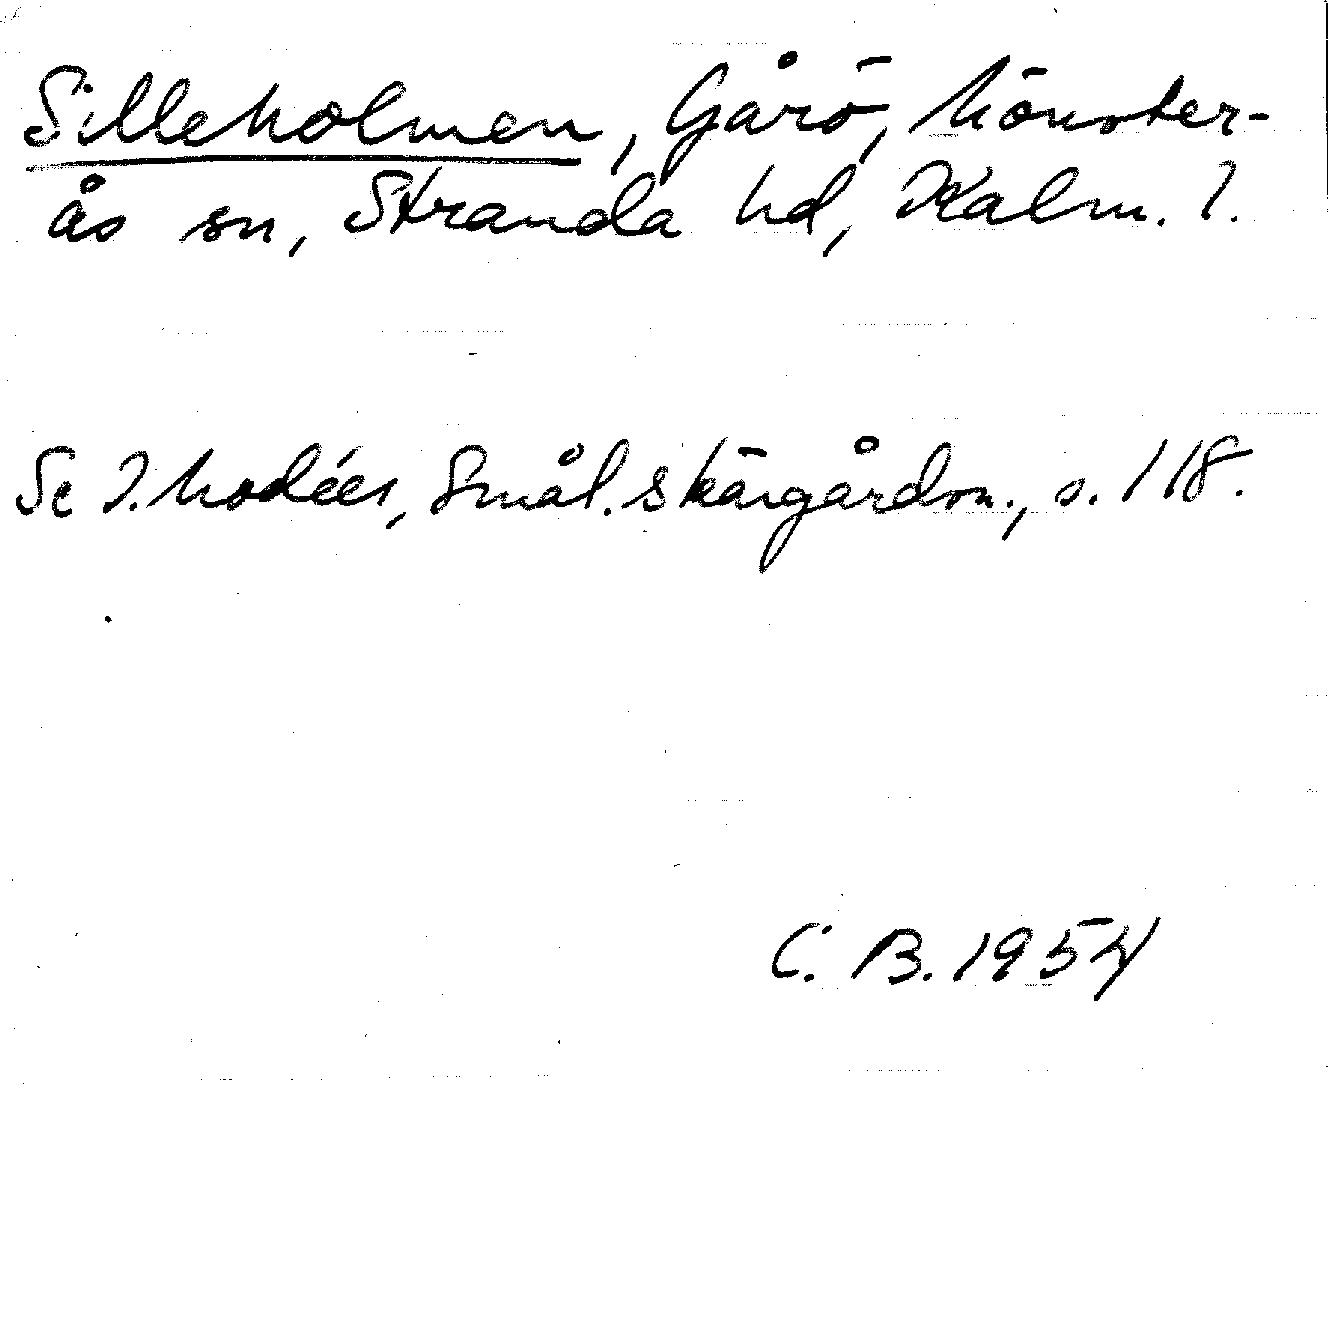 Silleholmen, Gårö, Mönster-
ås sn, Stranda hd, Kalm. l.
Se I. Modéer, Smål. skärgårdsn., s. 118.
C. B. 1954